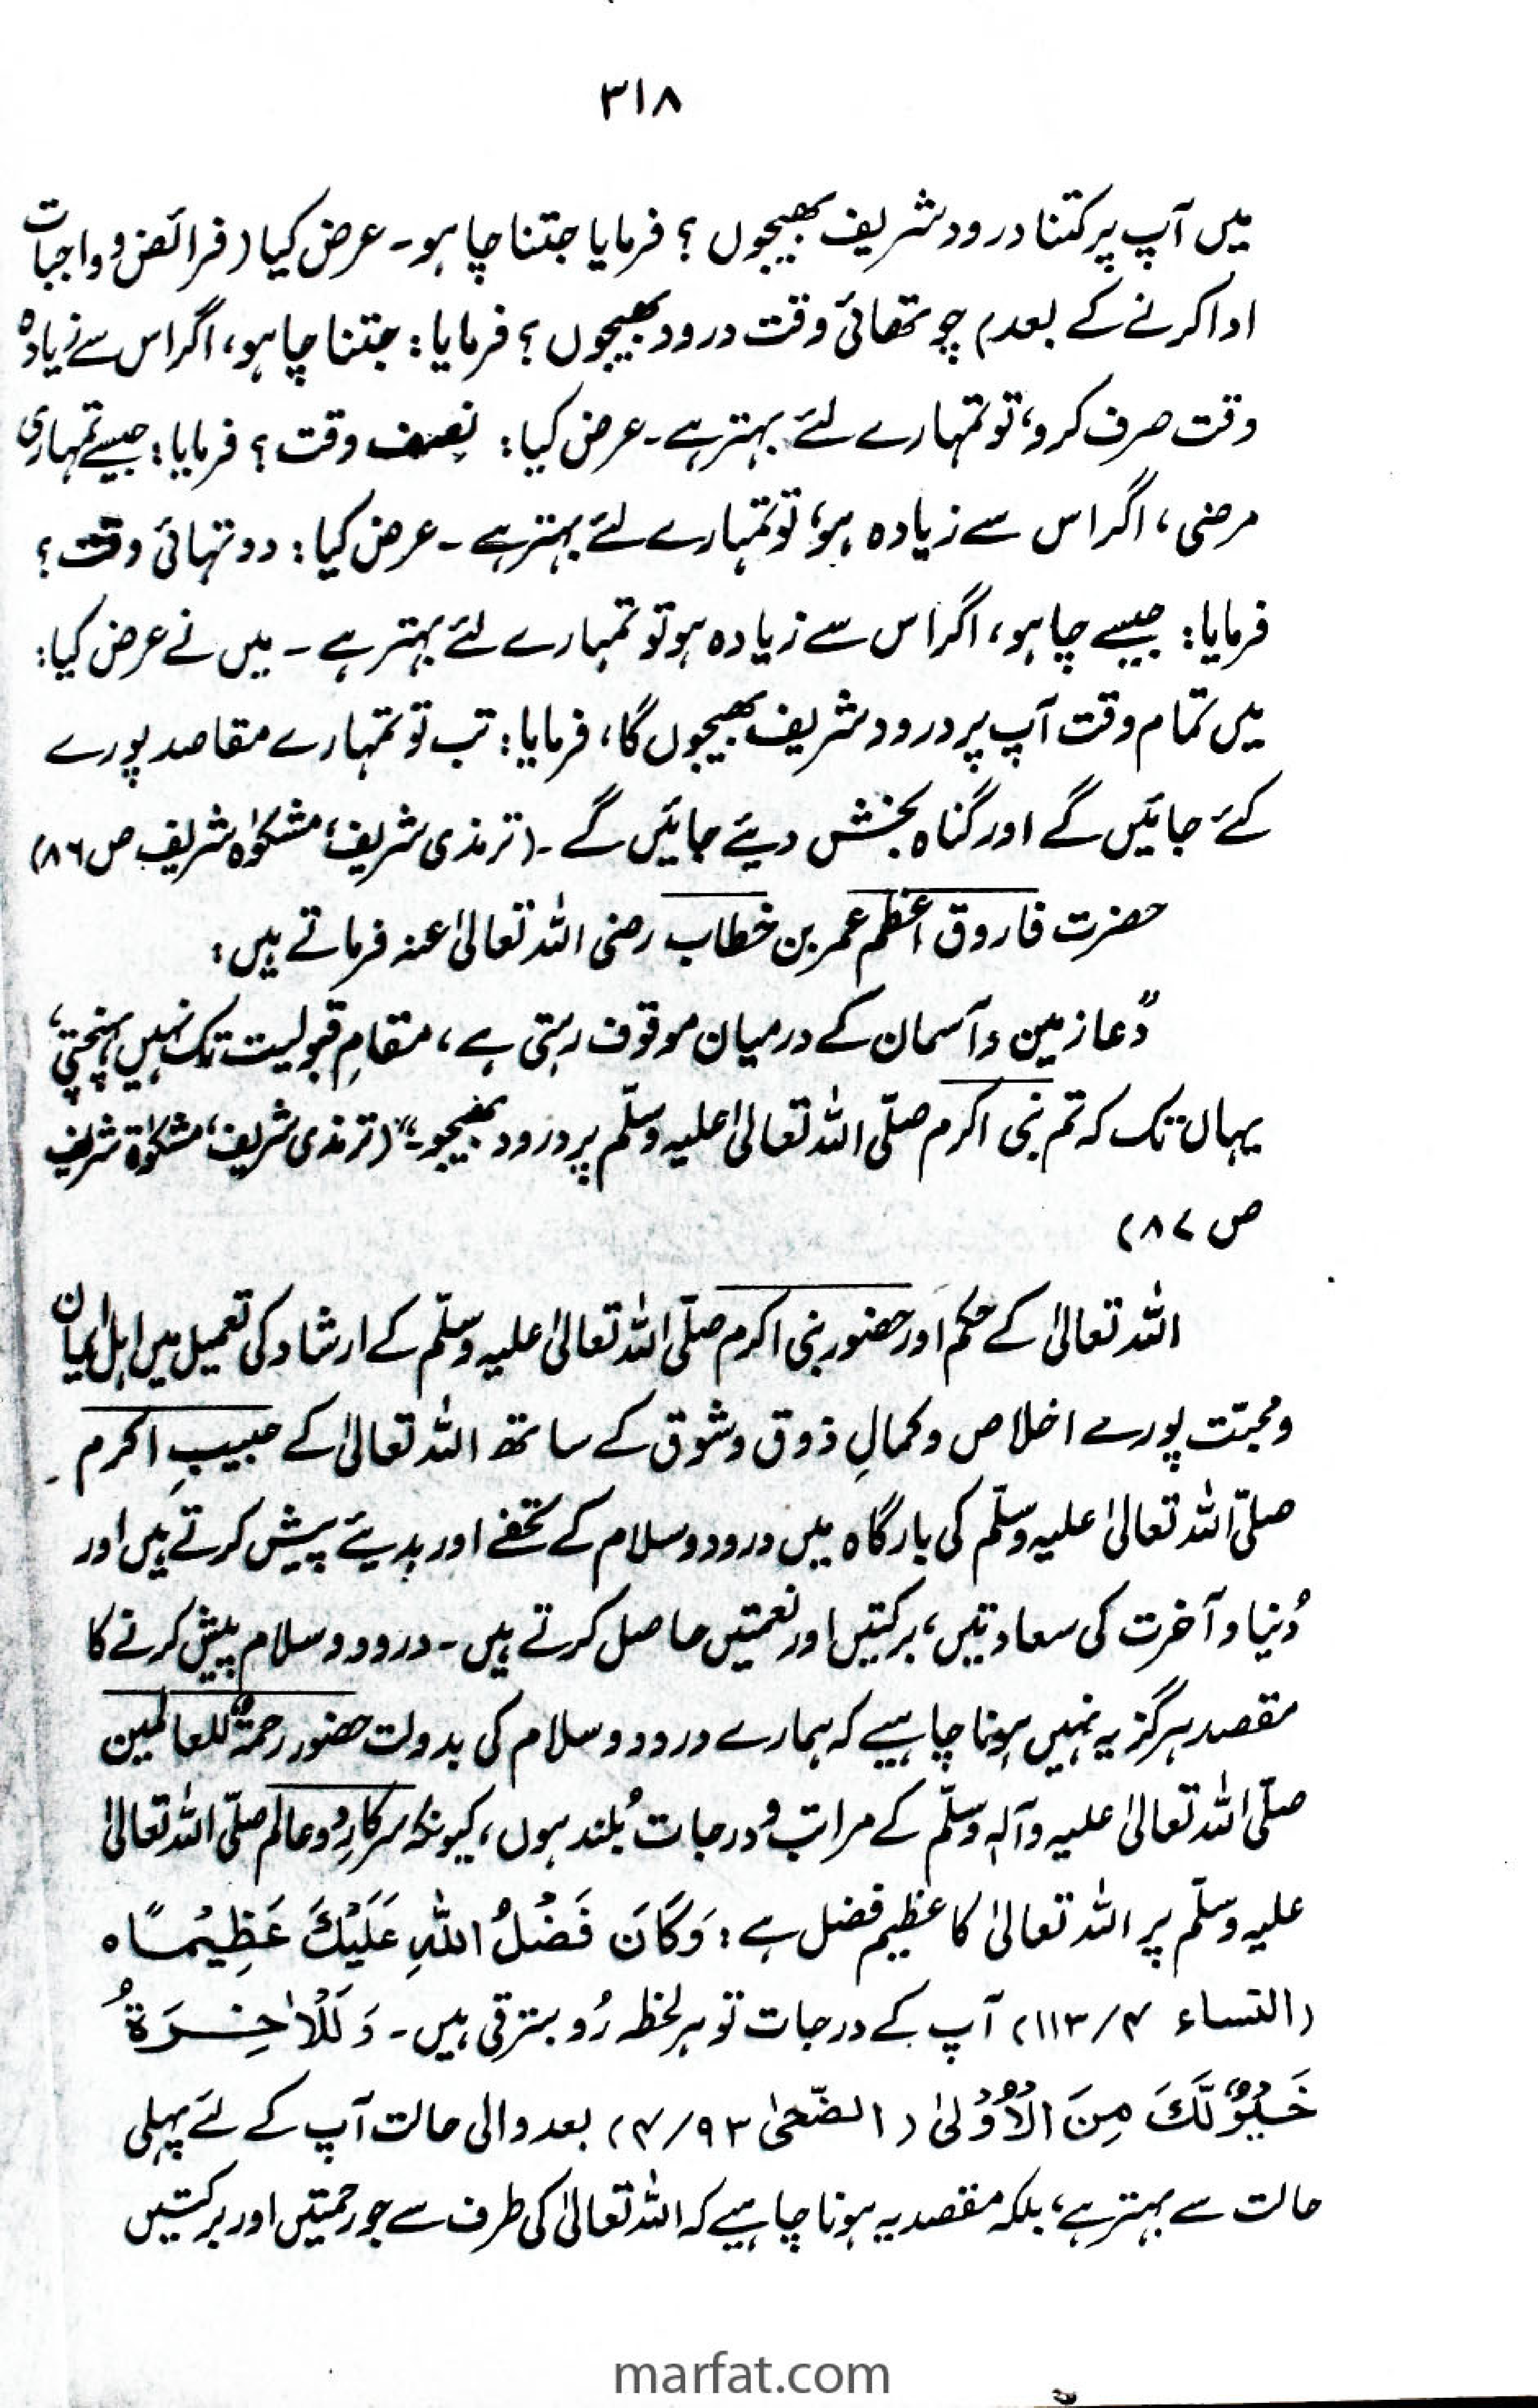 ٣١٨
میں آپ پر کتنا درود شریف بھیجوں ؟ فرمایا جتنا چاہو۔ عرض کیا (فرائض و واجبات
ادا کرنے کے بعد) چوتھائی وقت درود بھیجوں ؟ فرمایا : جتنا چاہو، اگر اس سے زیادہ
وقت صرف کرو، تو تمہارے لئے بہتر ہے۔ عرض کیا : نصف وقت ؟ فرمایا : جیسے تمہاری
مرضی، اگر اس سے زیادہ ہو، تو تمہارے لئے بہتر ہے۔ عرض کیا : دو تہائی وقت ؟
فرمایا : جیسے چاہو، اگر اس سے زیادہ ہو تو تمہارے لئے بہتر ہے۔ میں نے عرض کیا :
میں تمام وقت آپ پر درود شریف بھیجوں گا، فرمایا : تب تو تمہارے مقاصد پورے
کئے جائیں گے اور گناہ بخش دیئے جائیں گے۔ (ترمذی شریف، مشکوٰہ شریف ص ۸۶)
حضرت فاروق اعظم عمر بن خطاب رضی اللہ تعالیٰ عنہ فرماتے ہیں :
”دُعا زمین و آسمان کے درمیان موقوف رہتی ہے، مقامِ قبولیت تک نہیں پہنچتی،
یہاں تک کہ تم نبی اکرم صلّی اللہ تعالیٰ علیہ وسلّم پر درود بھیجو۔“ (ترمذی شریف، مشکوٰۃ شریف
ص ۸۷)
اللہ تعالیٰ کے حکم اور حضور نبی اکرم صلّی اللہ تعالیٰ علیہ وسلّم کے ارشاد کی تعمیل میں اہل ایمان
و محبّت پورے اخلاص و کمالِ ذوق و شوق کے ساتھ اللہ تعالیٰ کے حبیبِ اکرم
صلّی اللہ تعالیٰ علیہ وسلّم کی بارگاہ میں درود و سلام کے تحفے اور ہدیئے پیش کرتے ہیں اور
دُنیا و آخرت کی سعادتیں، برکتیں اور نعمتیں حاصل کرتے ہیں۔ درود و سلام پیش کرنے کا
مقصد ہرگز یہ نہیں ہونا چاہیے کہ ہمارے درود و سلام کی بدولت حضور رحمۃٌ للعالمین
صلّی اللہ تعالیٰ علیہ وآلہٖ وسلّم کے مراتب و درجات بُلند ہوں، کیونکہ سرکارِ دو عالم صلّی اللہ تعالیٰ
علیہ وسلّم پر اللہ تعالیٰ کا عظیم فضل ہے : وَكَانَ فَضْلُ اللهِ عَلَيْكَ عَظِيْمًا ہ
(النساء ۴/۱۱۳) آپ کے درجات تو ہر لحظہ رُو بترقی ہیں۔ وَلَلْاٰخِرَةُ
خَيْرٌ لَّكَ مِنَ الْاُوْلىٰ (الضّحیٰ ۹۳/۴) بعد والی حالت آپ کے لئے پہلی
حالت سے بہتر ہے، بلکہ مقصد یہ ہونا چاہیے کہ اللہ تعالیٰ کی طرف سے جو رحمتیں اور برکتیں
marfat.com